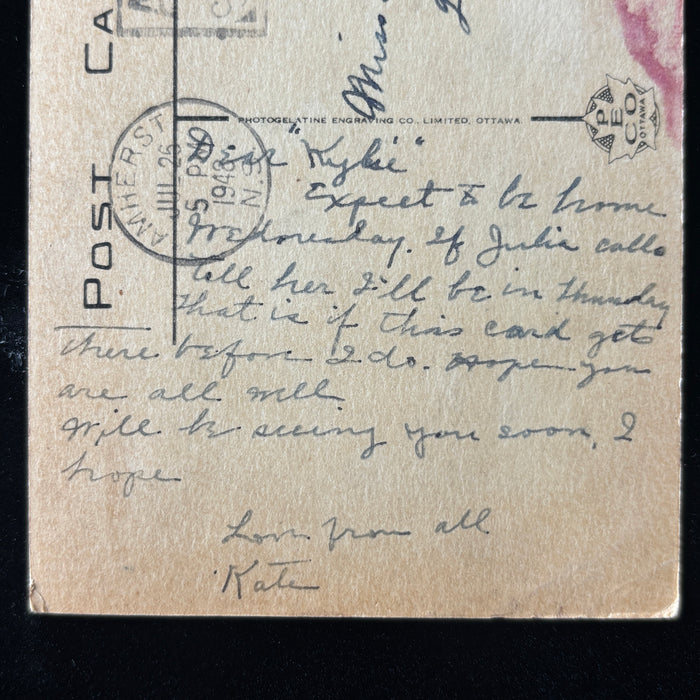 POST CA
Miss
PHOTOGELATINE ENGRAVING CO., LIMITED, OTTAWA.
PECO
OTTAWA
AMHERST
JUL 26
PM
N.S.
Dear "Kylie"
Expect to be home
Wednesday. If Julia calls
tell her I'll be in Thursday
That is if this card gets
there before I do. Hope you
are all well
Will be seeing you soon, I
hope
Love from all
Kate